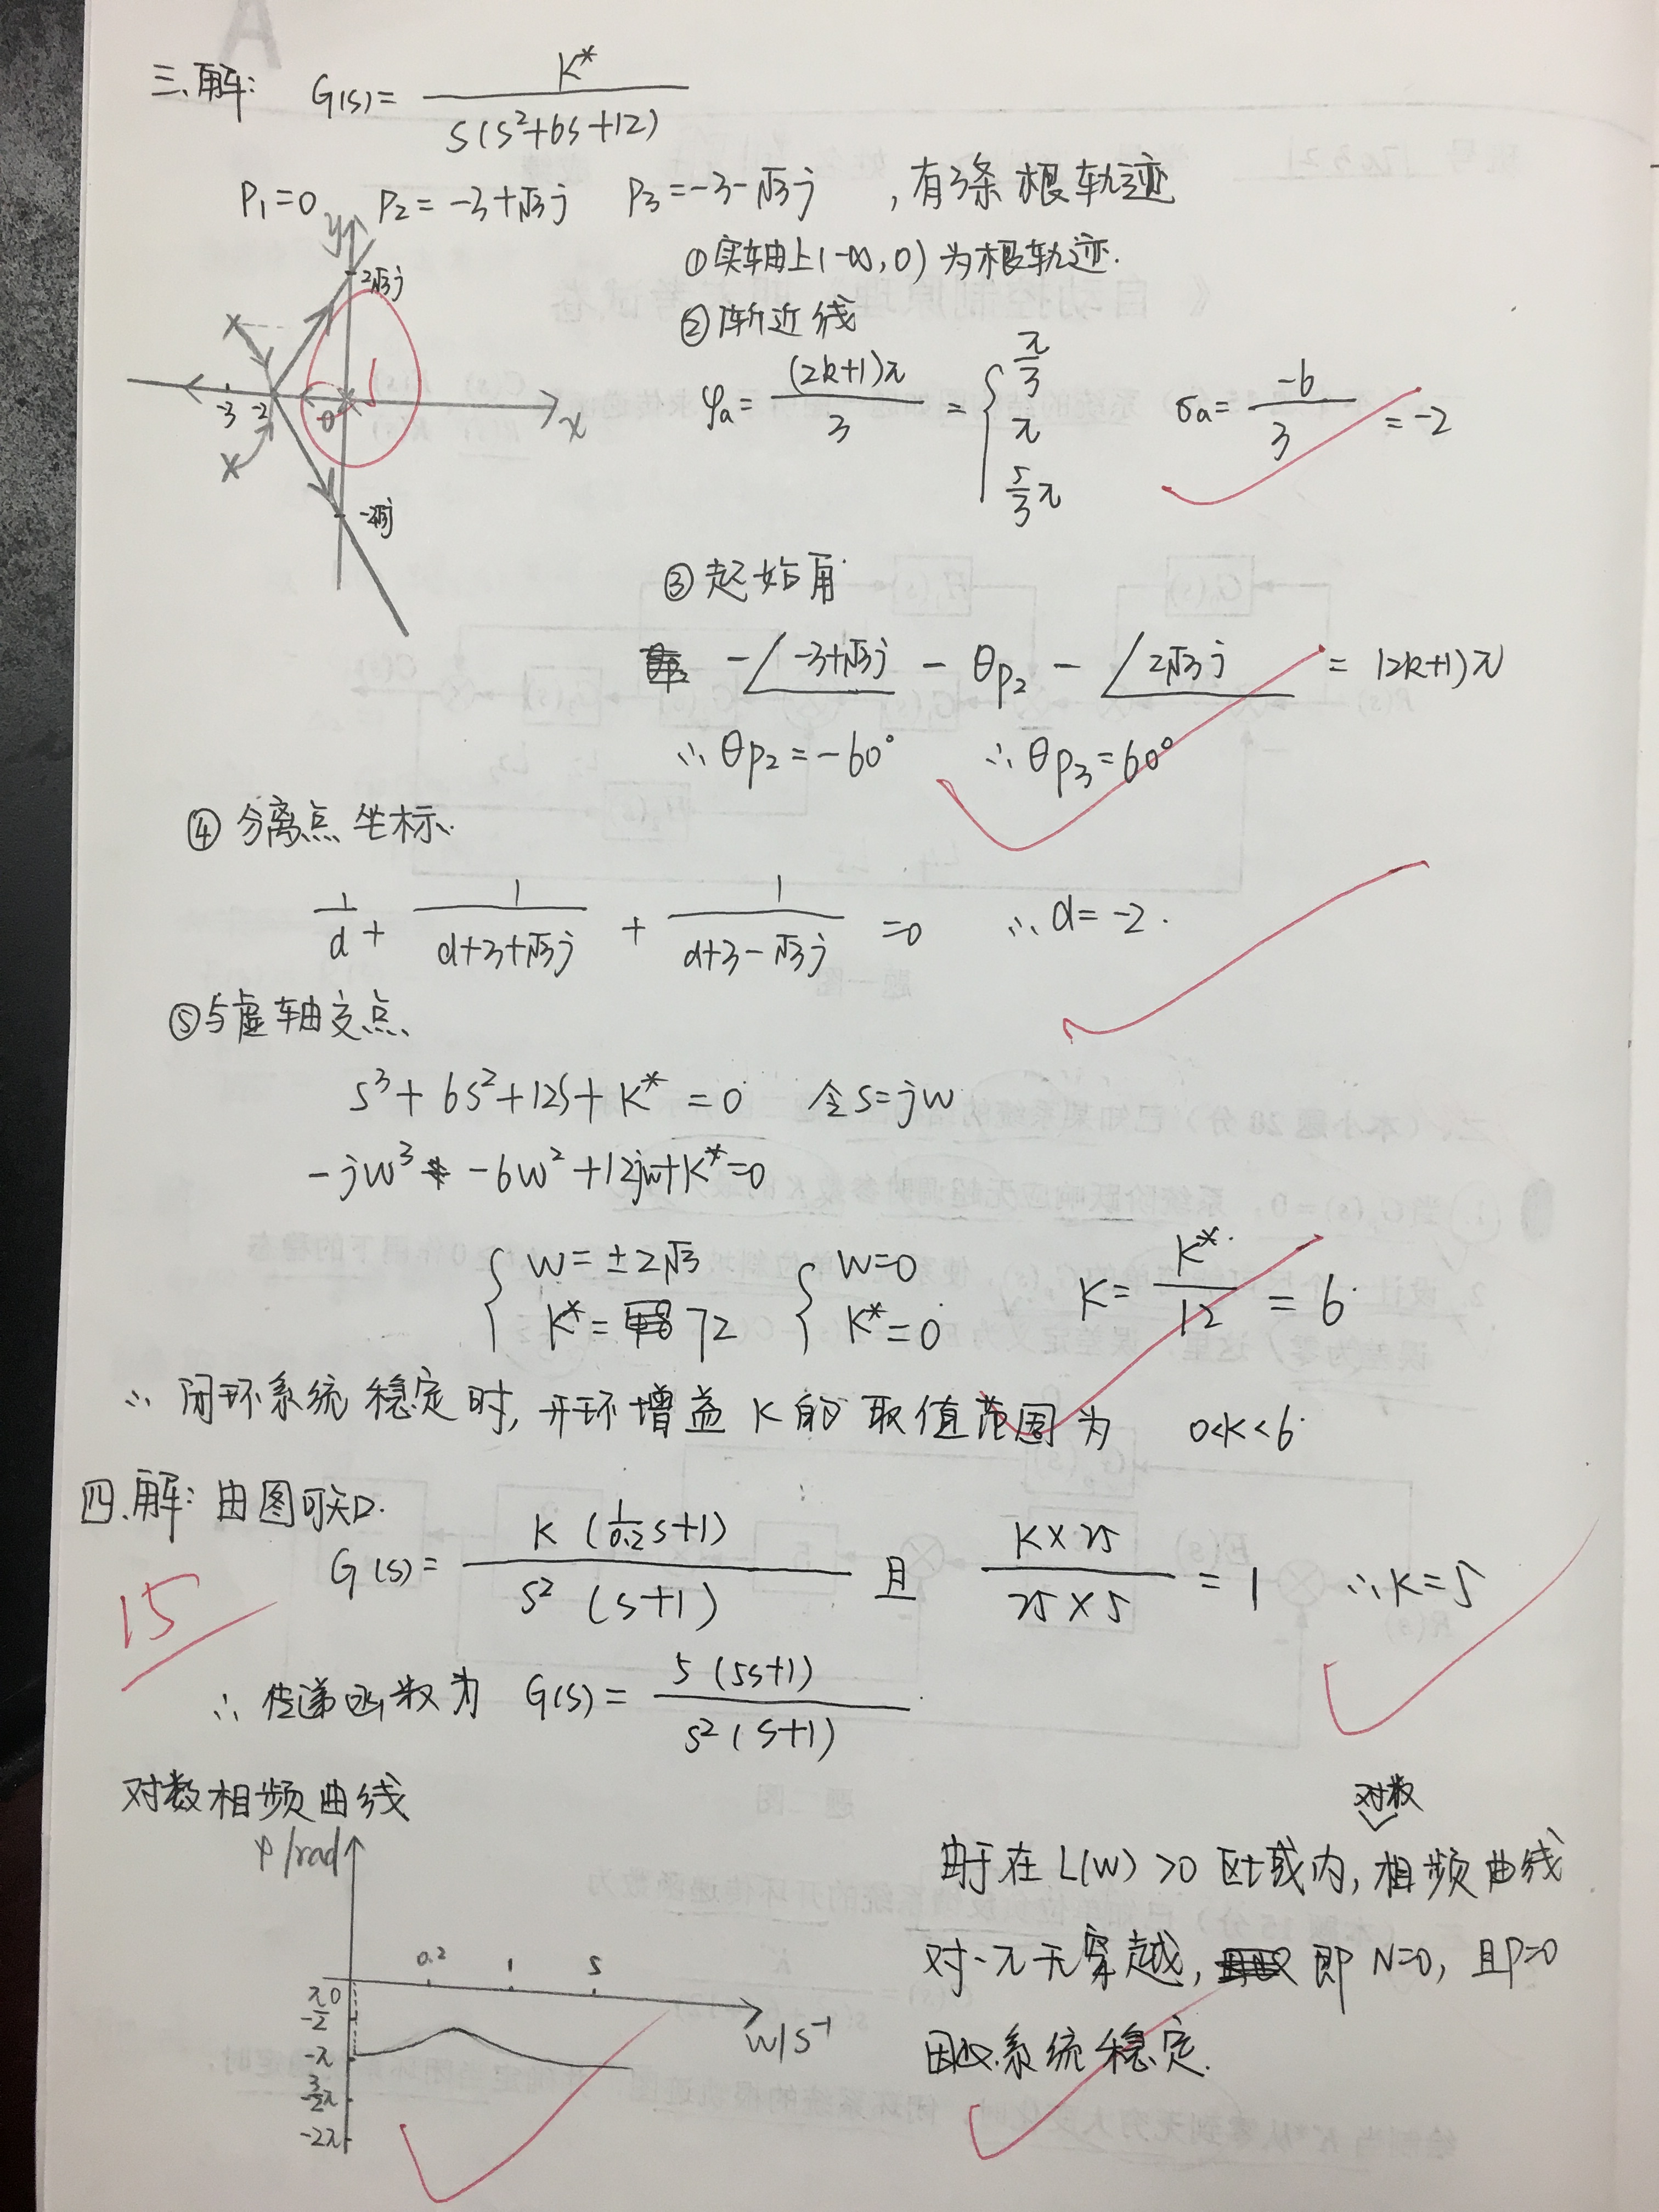 三、解: G(s)= K* / S(S²+6S+12)
P₁=0 P₂=-3+√3j P₃=-3-√3j ,有3条根轨迹
①实轴上(-∞,0)为根轨迹.
②渐近线
φa= (2k+1)π / 3 = { π/3 π 5/3π σa= -6/3 = -2
y
2√3j
-3 -2 0 x
-2√3j
③起始角
-∠-3+√3j - θp₂ - ∠2√3j = (2k+1)π
∴θp₂=-60° ∴θp₃=60°
④分离点坐标.
1/d + 1/(d+3+√3j) + 1/(d+3-√3j) =0 ∴d=-2.
⑤与虚轴交点
S³+6S²+12S+K*=0 令S=jw
-jw³ -6w²+12jw+K*=0
{ w=±2√3 K*=72 { w=0 K*=0 K= K*/12 = 6.
∴闭环系统稳定时,开环增益K的取值范围为 0<K<6.
四、解: 由图可知.
G(s)= K(1/0.2 S+1) / S²(S+1) 且 K×25 / 25×5 =1 ∴K=5
15
∴传递函数为 G(s)= 5(5S+1) / S²(S+1)
对数相频曲线
φ/rad
0.2 1 5
0
-π/2
-π
-3/2π
-2π
w/s⁻¹
由于在L(w)>0区域内,对数相频曲线
对-π无穿越, 即N=0,且P=0
因此系统稳定.